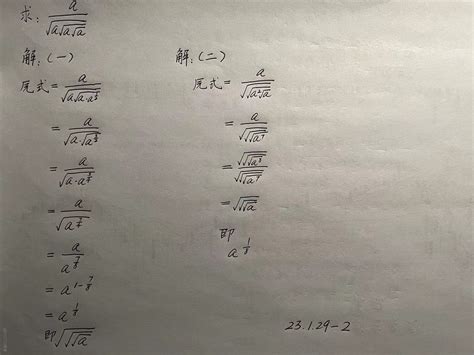 求: a/√(a√(a√a))
解: (一)
原式 = a/√(a√(a·a^(1/2)))
= a/√(a·√(a^(3/2)))
= a/√(a·a^(3/4))
= a/√(a^(7/4))
= a/a^(7/8)
= a^(1-7/8)
= a^(1/8)
即 √√√a
解: (二)
原式 = a/√(√(a³√a))
= a/√√√(a⁷)
= √√√(a⁸)/√√√(a⁷)
= √√√a
即
a^(1/8)
23.1.29-2